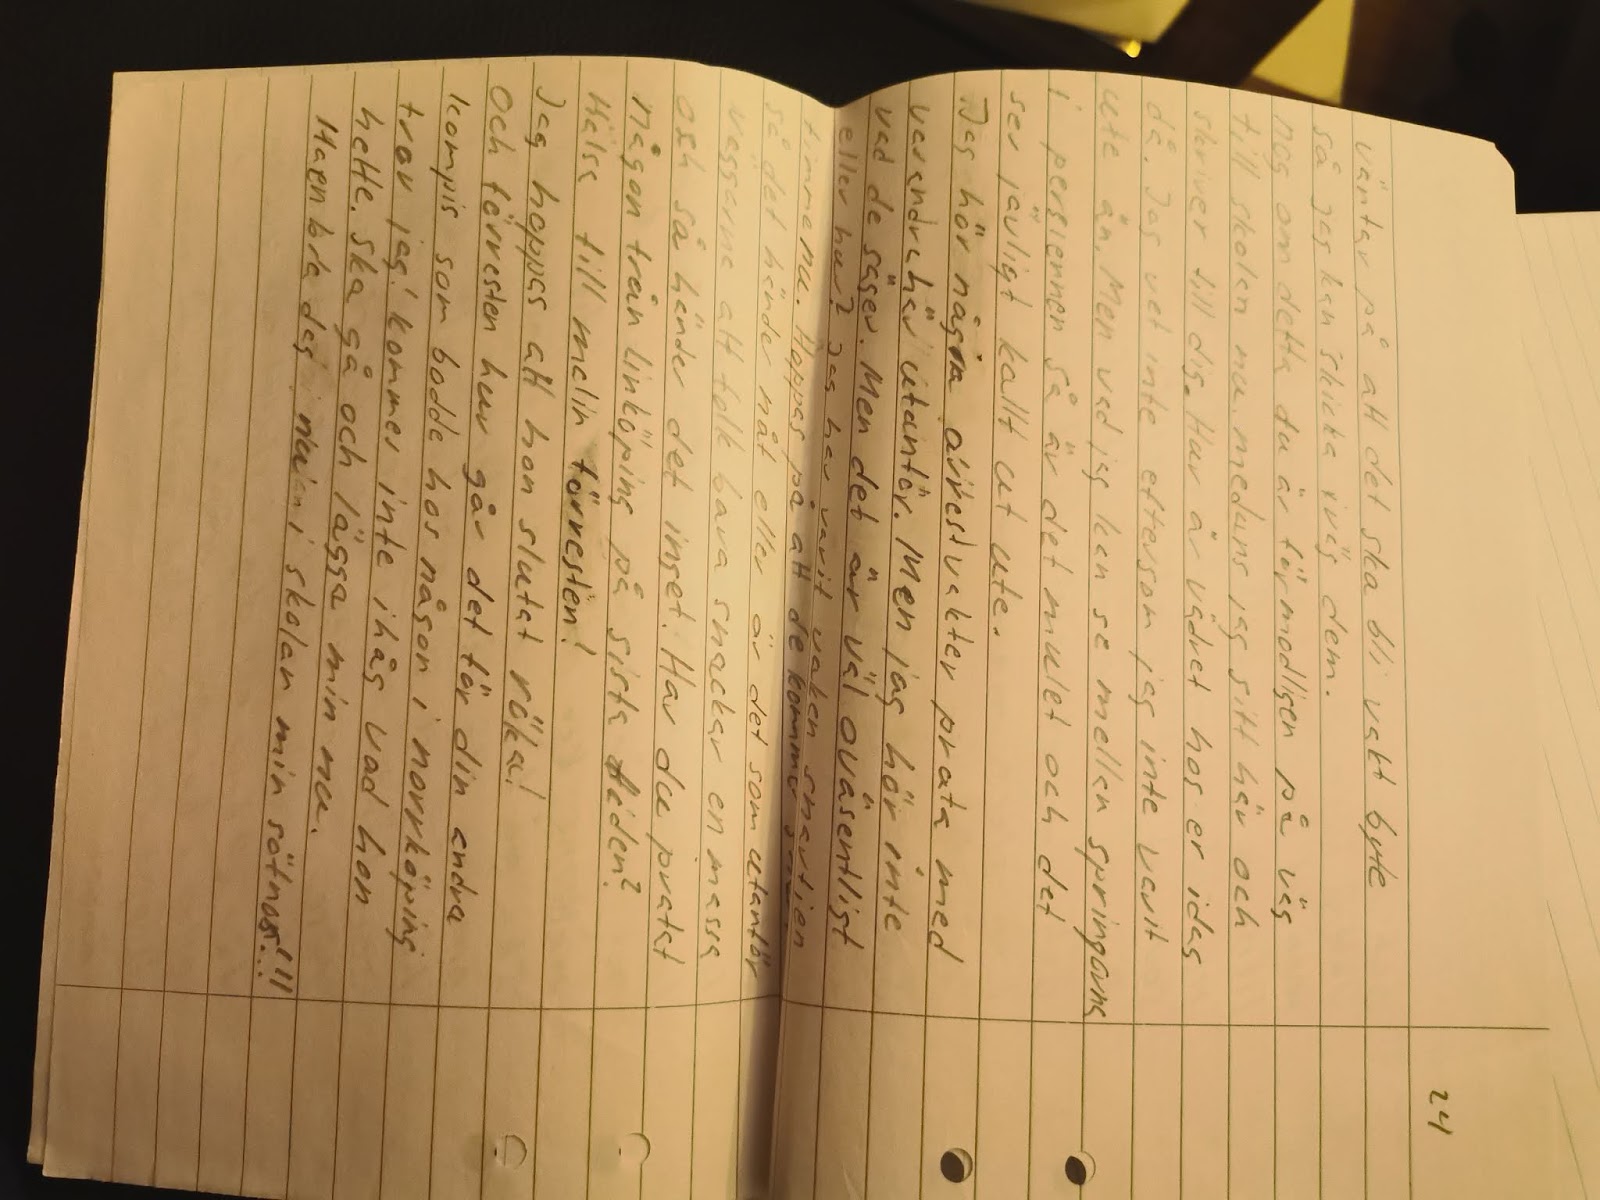 24
väntar på att det ska bli vakt byte
så jag kan skicka iväg dem.
nog om detta du är förmodligen på väg
till skolan nu. medans jag sitt här och
skriver till dig. Hur är vädret hos er idag
då. Jag vet inte eftersom jag inte varit
ute än. Men vad jag kan se mellan springorna
i persiennen så är det mulet och det
ser jävligt kallt ut ute.
Jag hör några arkestvakter prata med
varandra här utanför. Men jag hör inte
vad de säger. Men det är väl oväsentligt
eller hur? Jag har varit vaken snart en
timme nu. Hoppas på att de kommer
så det händer nåt eller är det som utanför
väggarna att folk bara snackar en massa
och så händer det inget! Har du pratat
någon från linköping på sista tiden?
Hälsa till malin förresten!
Jag hoppas att hon slutat röka!
Och förresten hur går det för din andra
kompis som bodde hos någon i norrköping
tror jag! kommer inte ihåg vad hon
hette. ska gå och lägga min nu.
Ha en bra dag i skolan min sötnos!!!